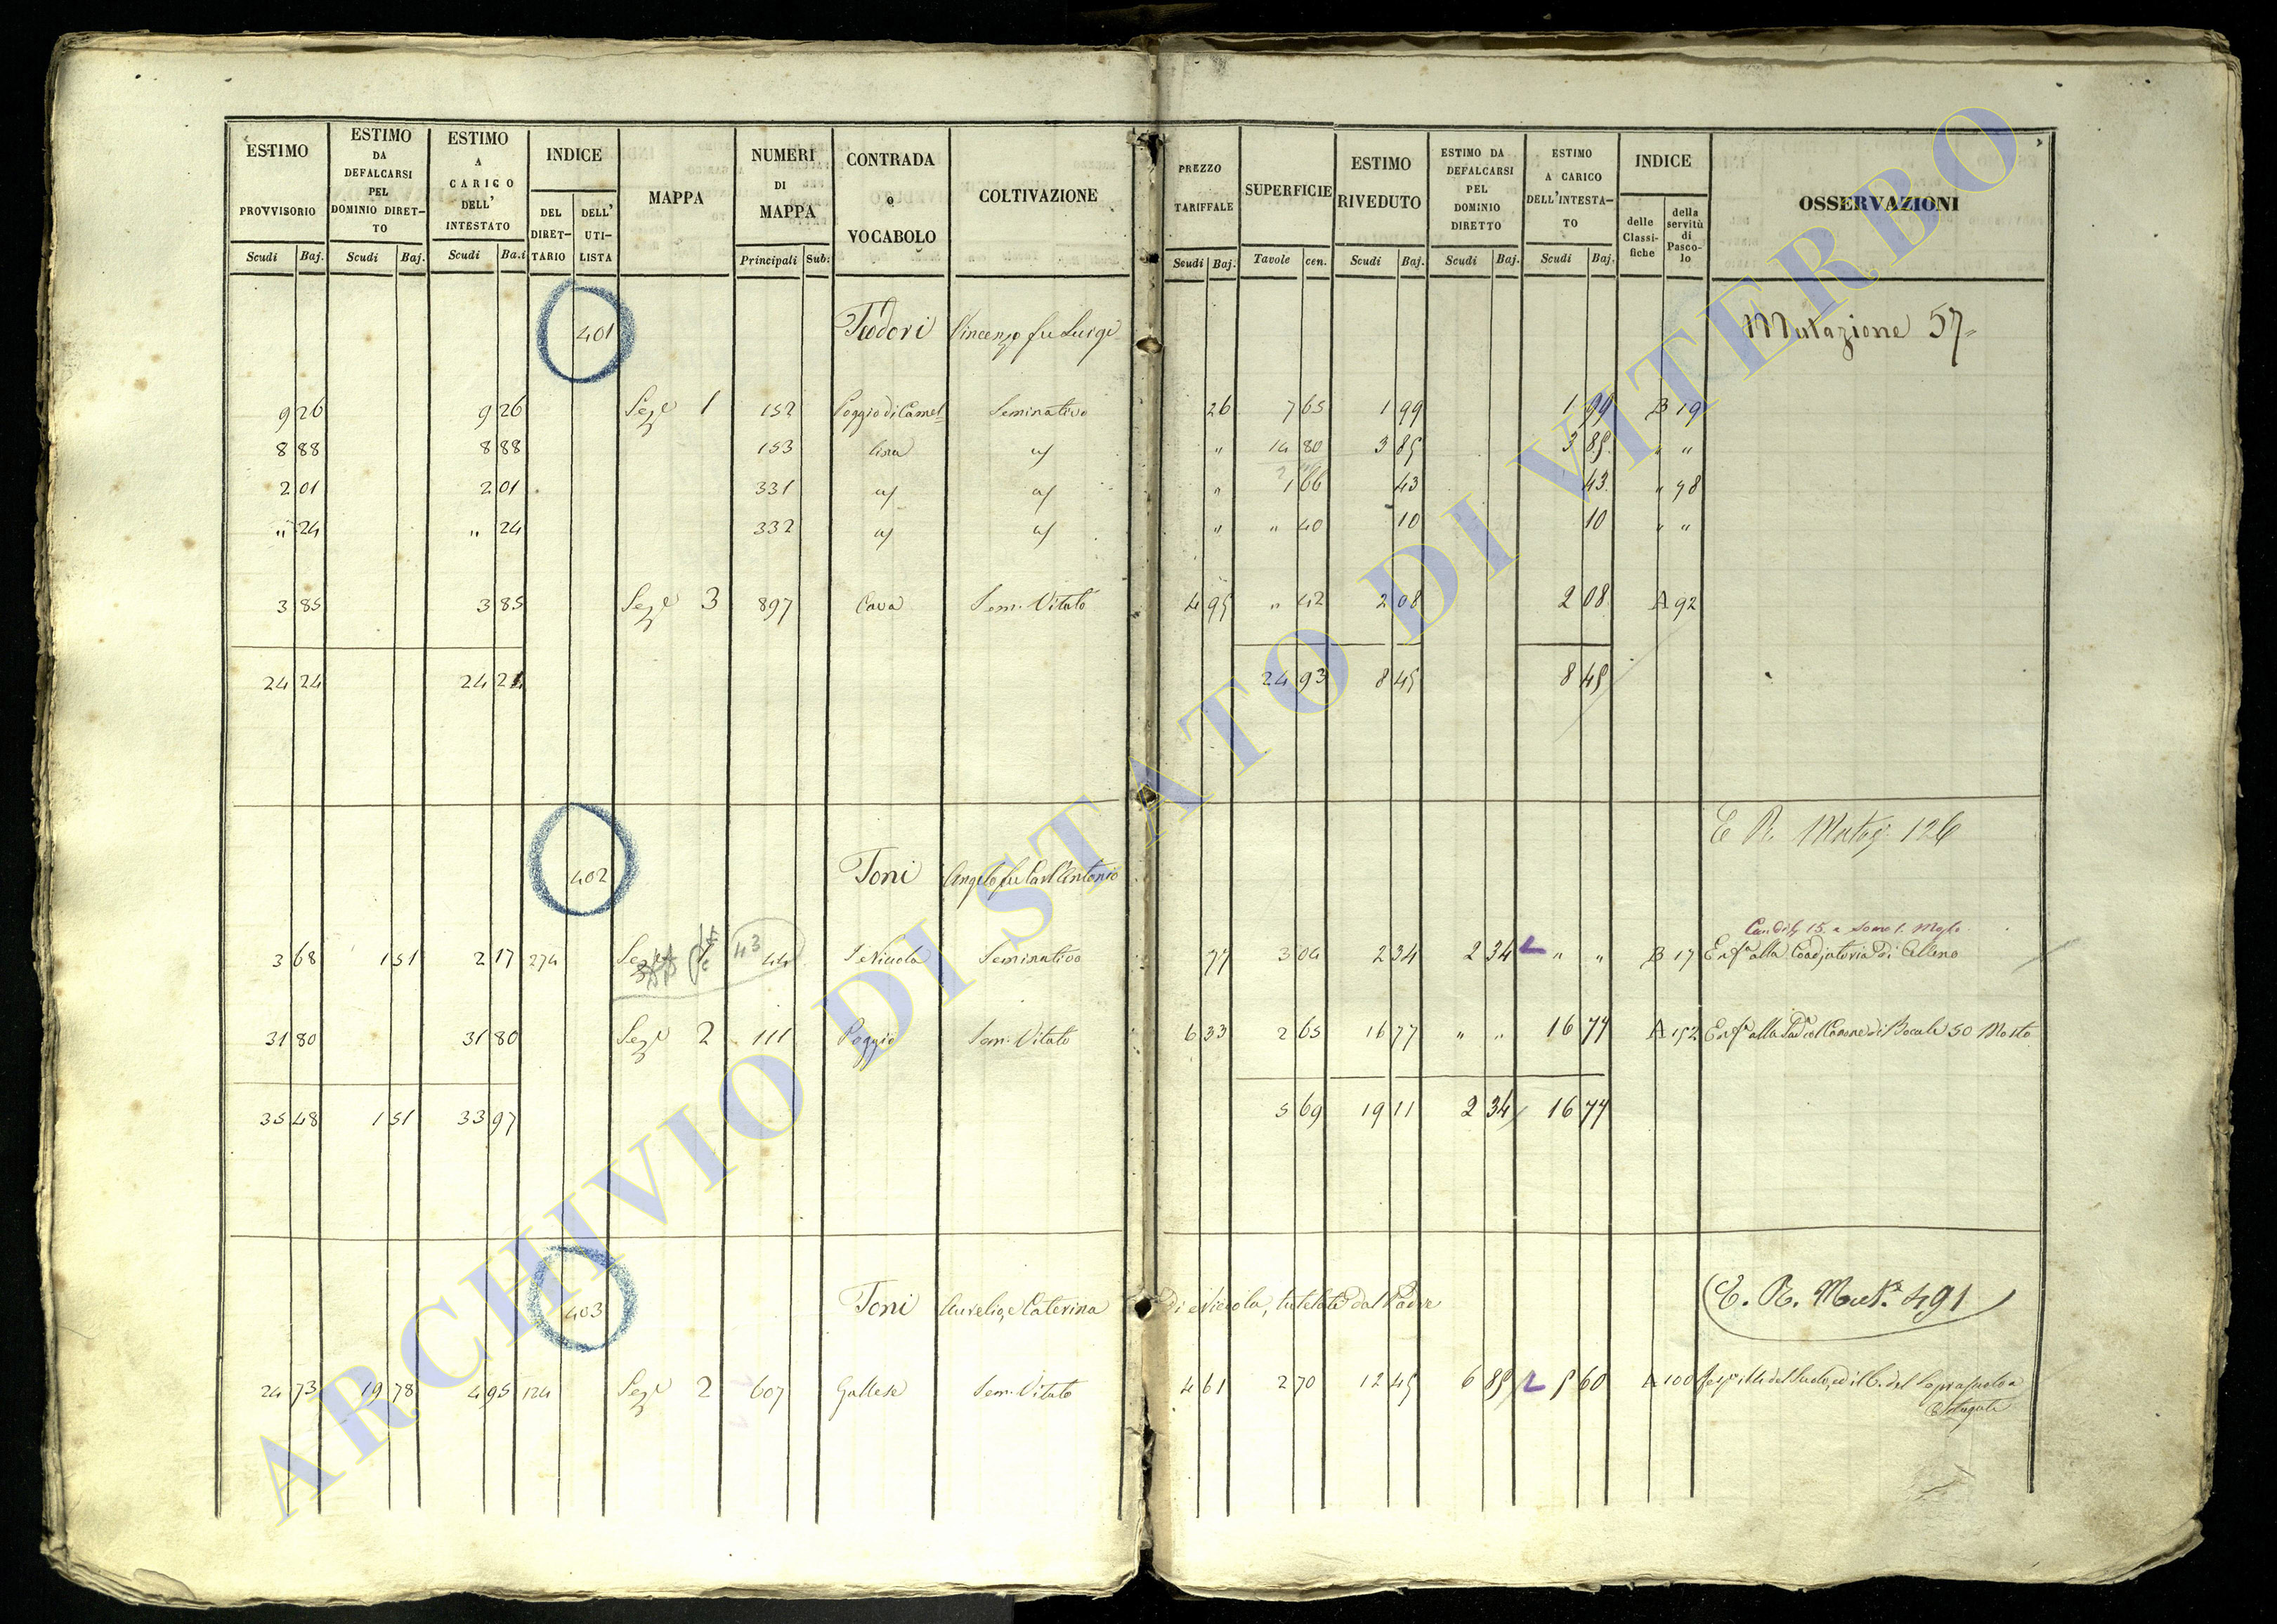 ESTIMO PROVVISORIO
ESTIMO DA DEFALCARSI PEL DOMINIO DIRET-TO
ESTIMO A CARICO DELL' INTESTATO
INDICE
DEL DIRET-TARIO
DELL' UTI-LISTA
MAPPA
NUMERI DI MAPPA
CONTRADA o VOCABOLO
COLTIVAZIONE
PREZZO TARIFFALE
SUPERFICIE
ESTIMO RIVEDUTO
ESTIMO DA DEFALCARSI PEL DOMINIO DIRETTO
ESTIMO A CARICO DELL'INTESTA-TO
INDICE
delle Classi-fiche
della servitù di Pasco-lo
OSSERVAZIONI
Scudi Baj. Scudi Baj. Scudi Baj. Principali Sub: Scudi Baj. Tavole cen. Scudi Baj. Scudi Baj. Scudi Baj.
401 Teodori Vincenzo fu Luigi Mutazione 57
9 26 9 26 Seze 1 152 Poggio di Camel= Seminativo 26 7 65 1 99 1 99 B 19
8 88 8 88 153 lina " 14 80 3 85 3 85 " "
2 01 2 01 331 " 1 66 43 43 " 98
" 24 " 24 332 " " 40 10 10 " "
3 85 3 85 Seze 3 897 Cava Sem. Vitato 4 95 " 42 2 08 2 08 A 92
24 24 24 24 24 93 8 45 8 45
E R. Mutaz. 126
402 Toni Angelo fu Carl'Antonio
3 68 1 51 2 17 274 43 44 Seminativo 77 3 04 2 34 2 34 " " B 17 Enf.a alla Coadjutoria di Celleno
31 80 31 80 Seze 2 111 Poggio Sem. Vitato 6 33 2 65 16 77 " " 16 77 A 152 Boccali 50 Mosto
35 48 1 51 33 97 5 69 19 11 2 34 16 77
403 Toni Aurelio, e Caterina di Nicola, tutelati dal Padre E. R. Mut. 491
24 73 19 78 4 95 124 Seze 2 607 Gallese Sem. Vitato 4 61 2 70 12 45 6 85 5 60 A 100
ARCHIVIO DI STATO DI VITERBO